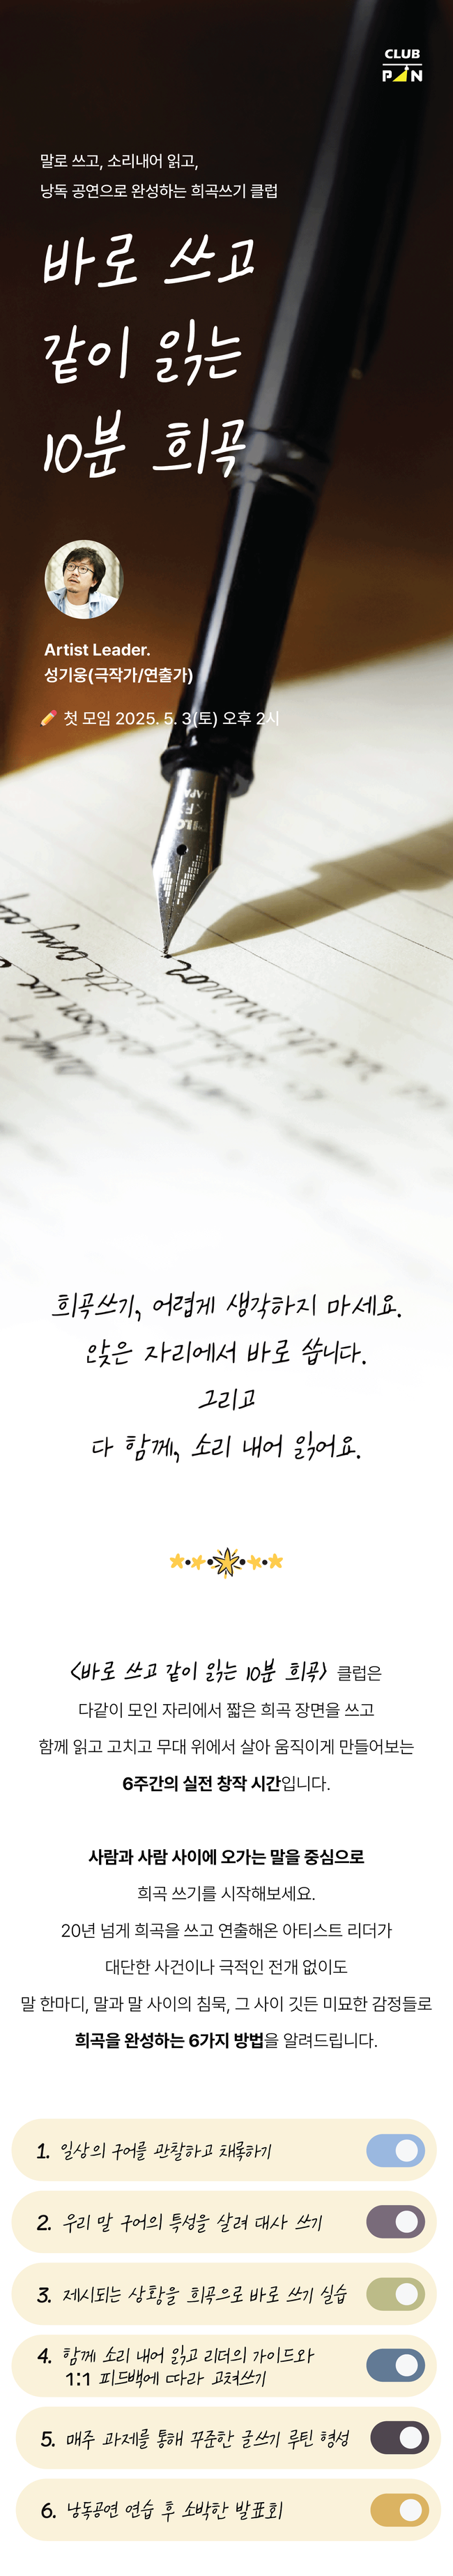 CLUB
PAN
말로 쓰고, 소리내어 읽고,
낭독 공연으로 완성하는 희곡쓰기 클럽
바로 쓰고
같이 읽는
10분 희곡
Artist Leader.
성기웅(극작가/연출가)
✏️ 첫 모임 2025. 5. 3(토) 오후 2시
희곡쓰기, 어렵게 생각하지 마세요.
앉은 자리에서 바로 씁니다.
그리고
다 함께, 소리 내어 읽어요.
<바로 쓰고 같이 읽는 10분 희곡> 클럽은
다같이 모인 자리에서 짧은 희곡 장면을 쓰고
함께 읽고 고치고 무대 위에서 살아 움직이게 만들어보는
6주간의 실전 창작 시간입니다.
사람과 사람 사이에 오가는 말을 중심으로
희곡 쓰기를 시작해보세요.
20년 넘게 희곡을 쓰고 연출해온 아티스트 리더가
대단한 사건이나 극적인 전개 없이도
말 한마디, 말과 말 사이의 침묵, 그 사이 깃든 미묘한 감정들로
희곡을 완성하는 6가지 방법을 알려드립니다.
1. 일상의 구어를 관찰하고 채록하기
2. 우리 말 구어의 특성을 살려 대사 쓰기
3. 제시되는 상황을 희곡으로 바로 쓰기 실습
4. 함께 소리 내어 읽고 리더의 가이드와
1:1 피드백에 따라 고쳐쓰기
5. 매주 과제를 통해 꾸준한 글쓰기 루틴 형성
6. 낭독공연 연습 후 소박한 발표회